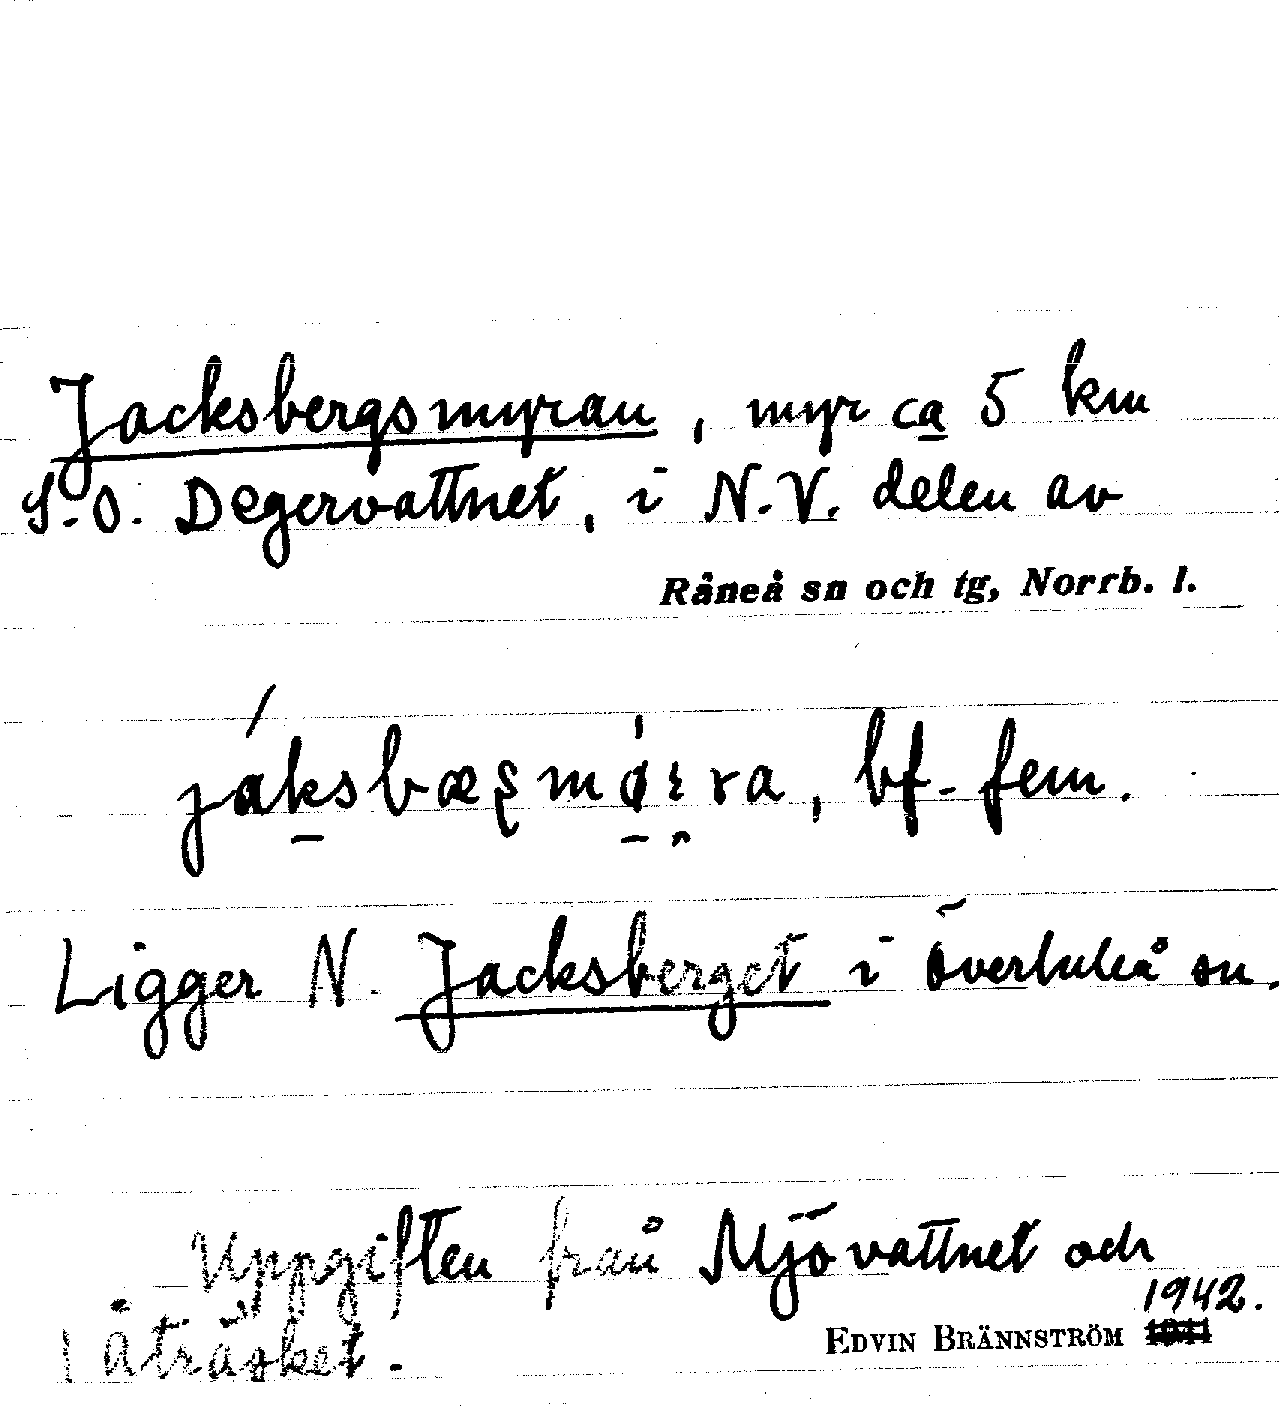 Jacksbergsmyran, myr ca 5 km
S.O. Degervattnet, i N.V. delen av
Råneå sn och tg, Norrb. l.
bf. fem.
Ligger N. Jacksberget i Överluleå sn.
Uppgiften från Mjövattnet och
1942.
Låträsket.
EDVIN BRÄNNSTRÖM 1941